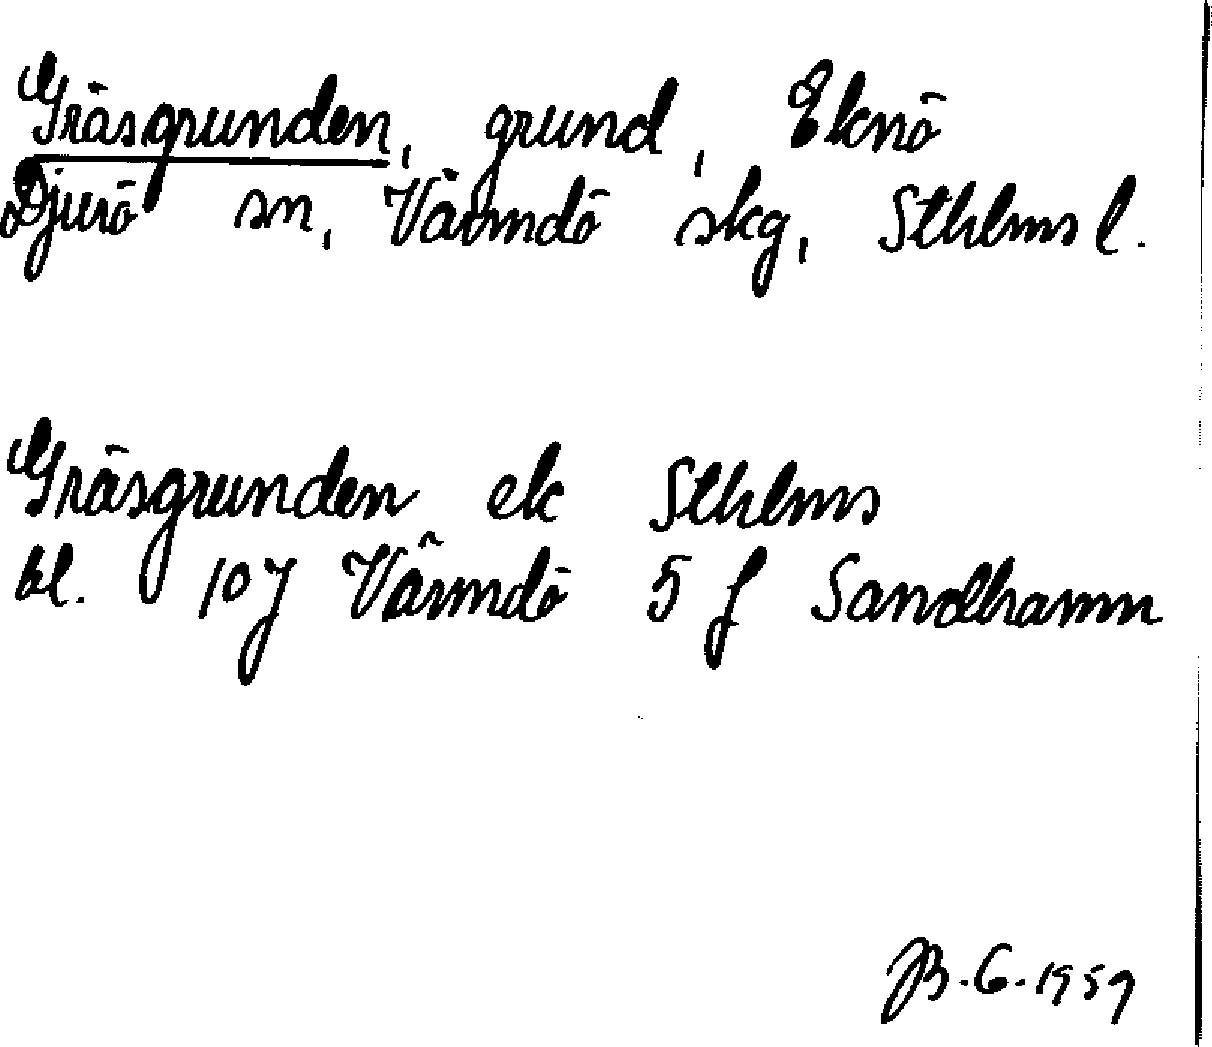 Gräsgrunden, grund, Eknö
Djurö sn, Värmdö skg, Sthlms l.
Gräsgrunden ek Sthlms
bl. 10J Värmdö 5 f Sandhamn
B.G. 1959